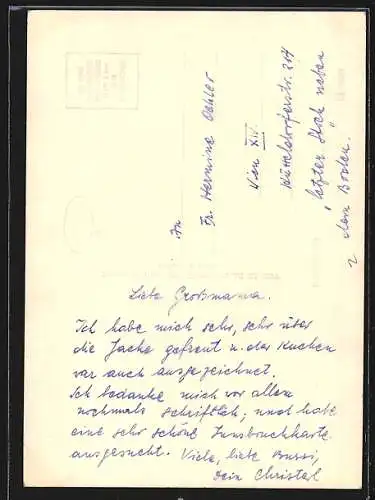 An
Fr. Hermine Oehler
Wien XIV.
Hütteldorferstr. 204
"letzter Stich neben
dem Boden.
Liebe Grossmama.
Ich habe mich sehr, sehr über
die Jacke gefreut u. der Kuchen
war auch ausgezeichnet.
Ich bedanke mich vor allem
nochmals schriftlich; und habe
eine sehr schöne Innsbruckkarte
ausgesucht. Viele, liebe Bussi,
Dein Christal